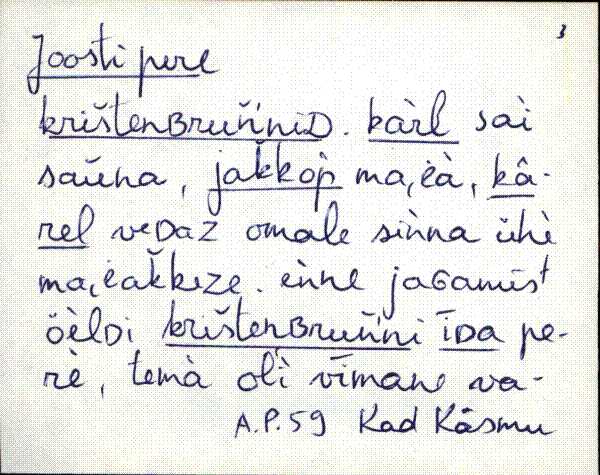 3
Joosti pere
krištenʙruňńiᴅ. kàrl sai
saŭna, jakkop̀ ma,èà, kâ-
rel veᴅaz omale sìnna ühè
ma,èakkeze. ènne jaɢamist
öèlᴅi krištenʙruňńi īᴅa pe-
rè, temà olì vīmane va-
A.P. 59 Kad Käsmu